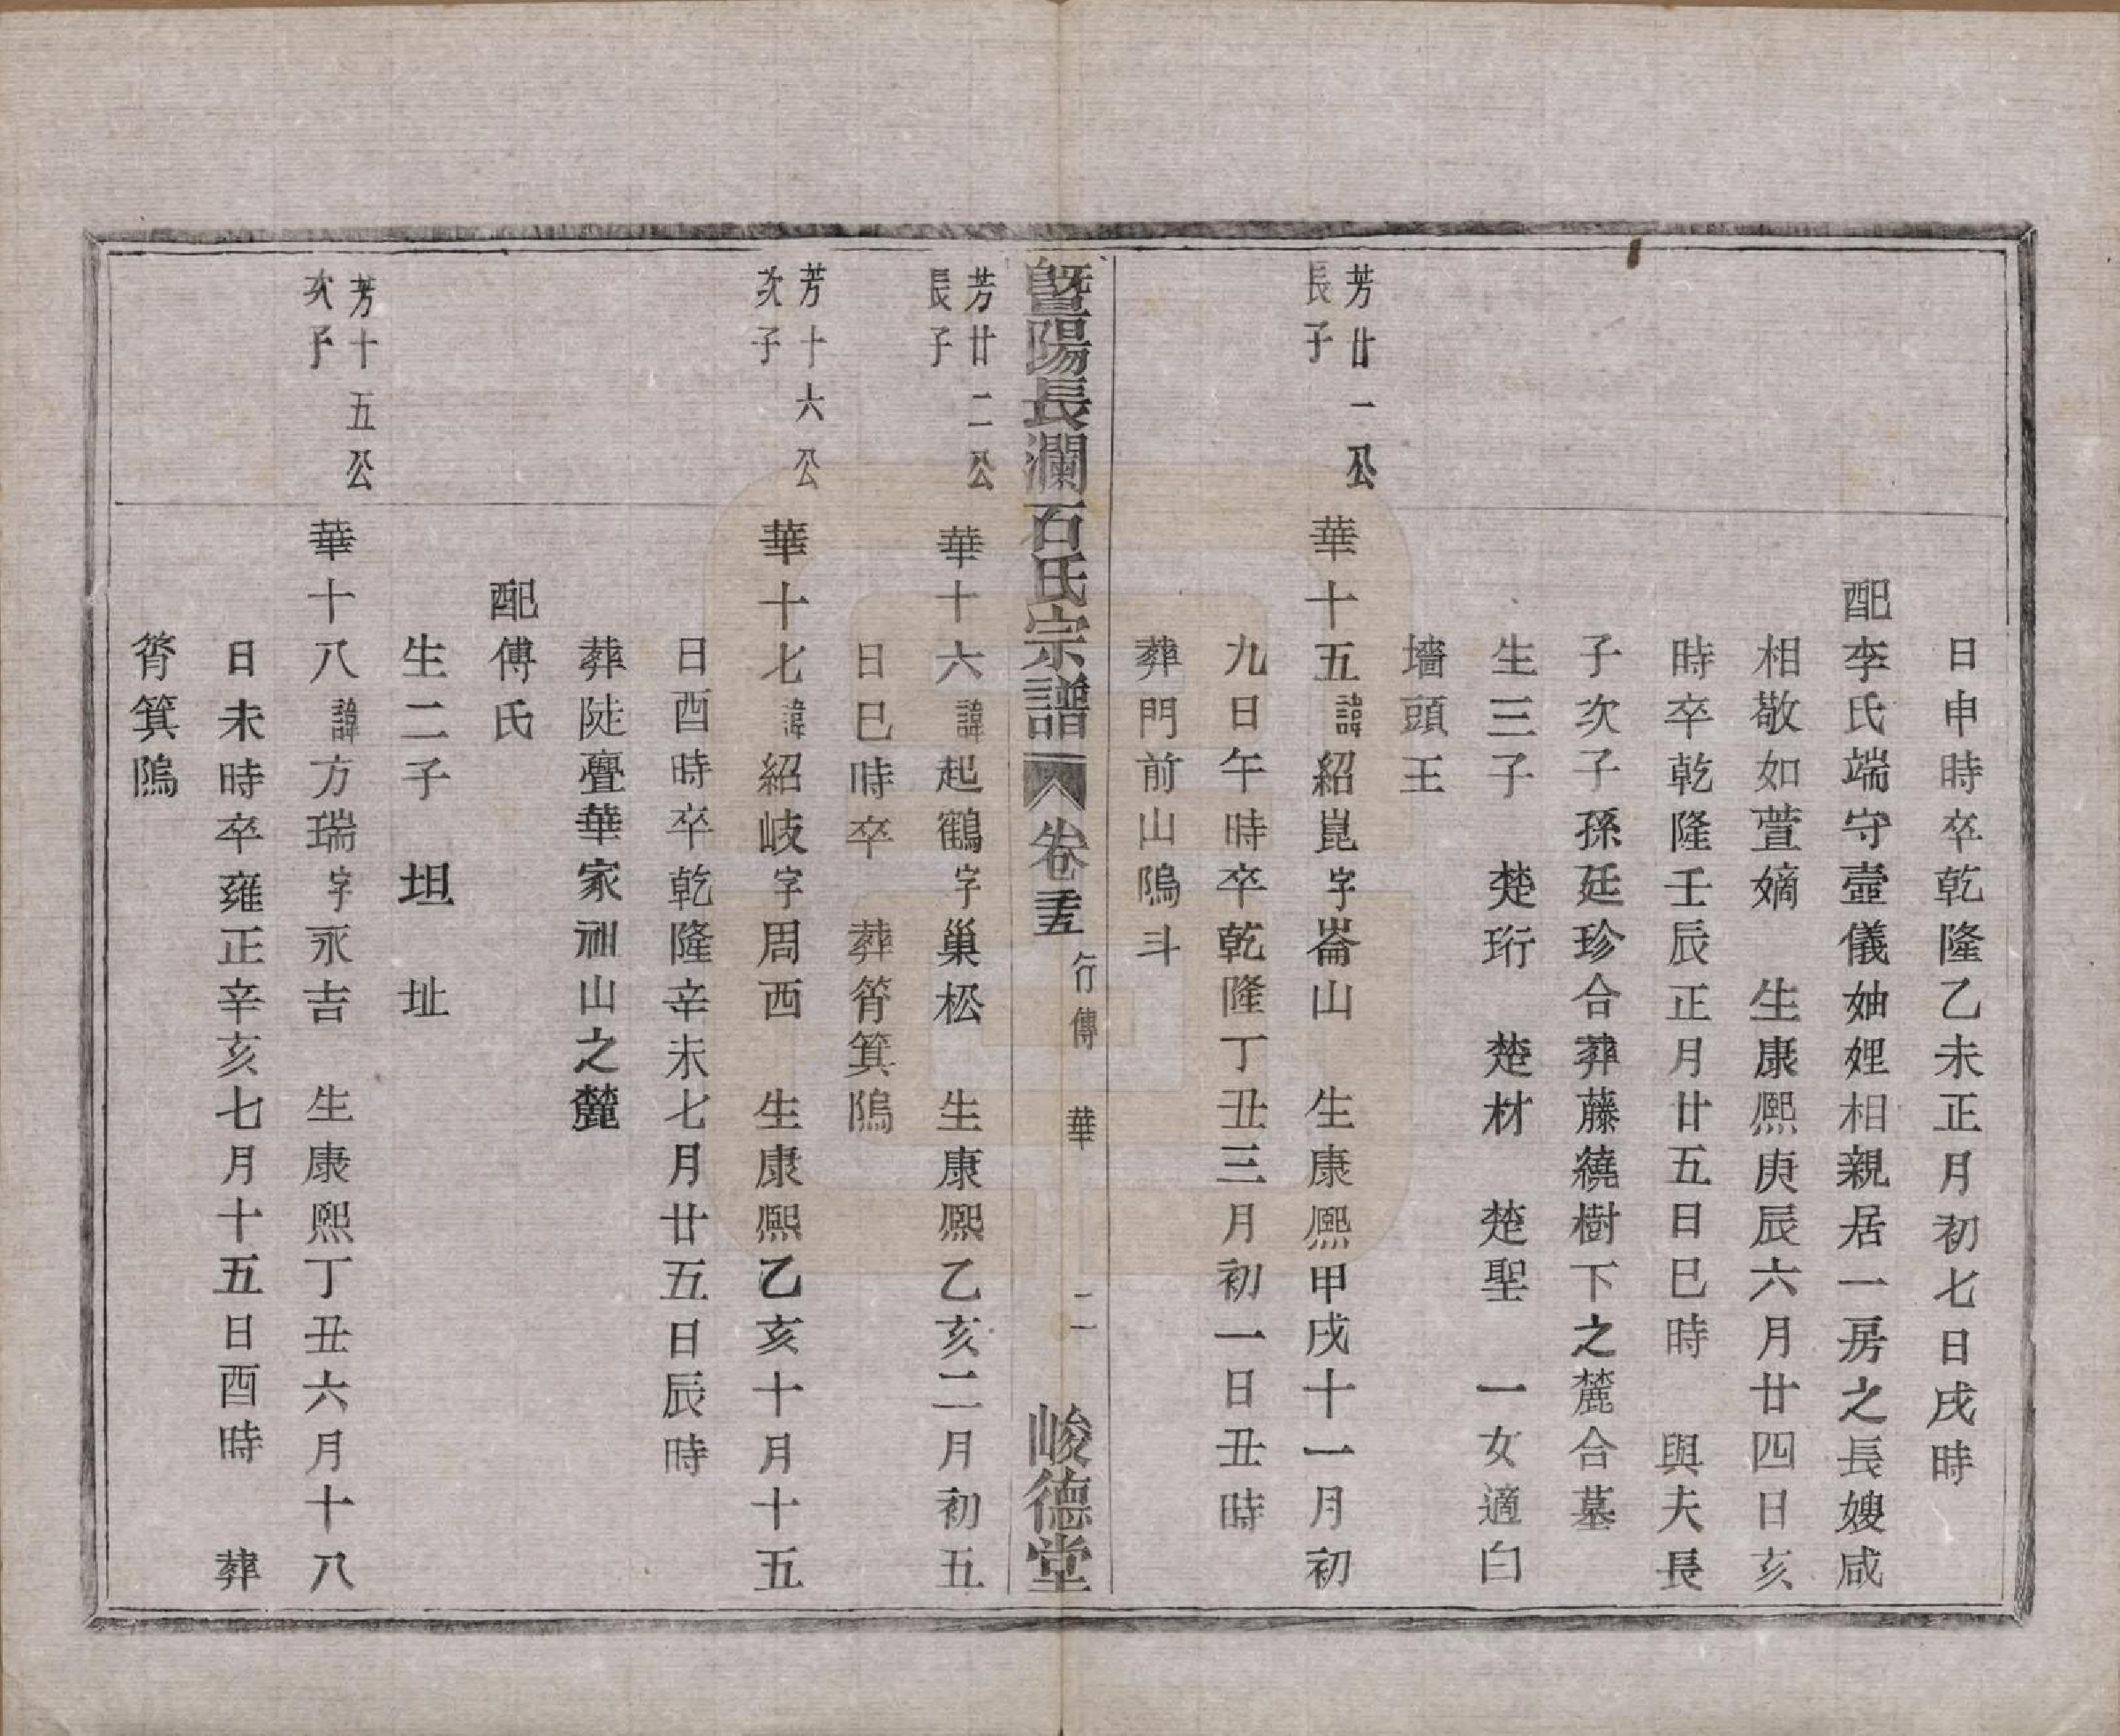 日申時卒乾隆乙未正月初七日戌時
配李氏端守壼儀妯娌相親居一房之長嫂咸
相敬如萱嫡　生康熙庚辰六月廿四日亥
時卒乾隆壬辰正月廿五日巳時　與夫長
子次子孫廷珍合葬藤繞樹下之麓合墓
生三子　楚珩　楚材　楚聖　一女適白
墻頭王
芳廿一公
長子
華十五諱紹崑字崙山　生康熙甲戌十一月初
九日午時卒乾隆丁丑三月初一日丑時
葬門前山隖斗
暨陽長瀾石氏宗譜　卷　行傳　華　二　峻德堂
芳廿二公
長子
華十六諱起鶴字巢松　生康熙乙亥二月初五
日巳時卒　葬筲箕隖
芳十六公
次子
華十七諱紹岐字周西　生康熙乙亥十月十五
日酉時卒乾隆辛未七月廿五日辰時
葬陡疊華家祠山之麓
配傅氏
生二子　坦　址
芳十五公
次子
華十八諱方瑞字永吉　生康熙丁丑六月十八
日未時卒雍正辛亥七月十五日酉時　葬
筲箕隖